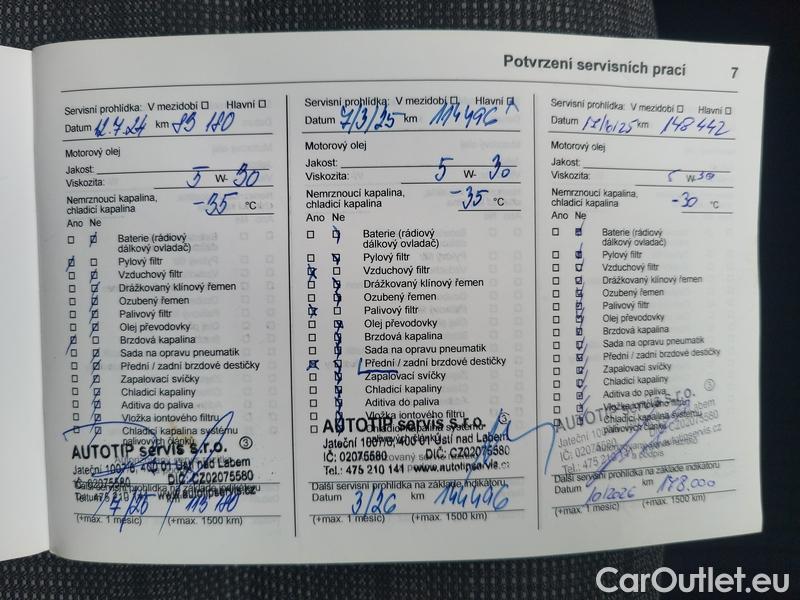 Potvrzení servisních prací 7
Servisní prohlídka: V mezidobí Hlavní
Datum 12.7.24 km 83 180
Motorový olej
Jakost:
Viskozita: 5 W- 30
Nemrznoucí kapalina,
chladicí kapalina -35 °C
Ano Ne
Baterie (rádiový
dálkový ovladač)
Pylový filtr
Vzduchový filtr
Drážkovaný klínový řemen
Ozubený řemen
Palivový filtr
Olej převodovky
Brzdová kapalina
Sada na opravu pneumatik
Přední / zadní brzdové destičky
Zapalovací svíčky
Chladicí kapaliny
Aditiva do paliva
Vložka iontového filtru
Chladicí kapalina systému
palivových článků
AUTOTIP servis s.r.o. 3
Jateční 100/ 400 01 Ústí nad Labem
IČ: 02075580 DIČ: CZ02075580
Další servisní prohlídka na základě indikátoru
Tel.: 475 210 www.autotipservis.cz
7/25 113 180
(+max. 1 měsíc) (+max. 1500 km)
Servisní prohlídka: V mezidobí Hlavní
Datum 7/3/25 km 114496
Motorový olej
Jakost:
Viskozita: 5 W- 30
Nemrznoucí kapalina,
chladicí kapalina -35 °C
Ano Ne
Baterie (rádiový
dálkový ovladač)
Pylový filtr
Vzduchový filtr
Drážkovaný klínový řemen
Ozubený řemen
Palivový filtr
Olej převodovky
Brzdová kapalina
Sada na opravu pneumatik
Přední / zadní brzdové destičky
Zapalovací svíčky
Chladicí kapaliny
Aditiva do paliva
Vložka iontového filtru
Chladicí kapalina systému
AUTOTIP servis s.r.o. 3
Jateční 100/70, 400 01 Ústí nad Labem
IČ: 02075580 DIČ: CZ02075580
Tel.: 475 210 141 www.autotipservis.cz
Další servisní prohlídka na základě indikátoru
Datum 3/26 km 144496
(+max. 1 měsíc) (+max. 1500 km)
Servisní prohlídka: V mezidobí Hlavní
Datum km 148 442
Motorový olej
Jakost:
Viskozita: 5 W- 30
Nemrznoucí kapalina,
chladicí kapalina -30 °C
Ano Ne
Baterie (rádiový
dálkový ovladač)
Pylový filtr
Vzduchový filtr
Drážkovaný klínový řemen
Ozubený řemen
Palivový filtr
Olej převodovky
Brzdová kapalina
Sada na opravu pneumatik
Přední / zadní brzdové destičky
Zapalovací svíčky
Chladicí kapaliny
Aditiva do paliva
Vložka iontového filtru
Chladicí kapalina systému
palivových článků
AUTOTIP s.r.o. 3
Jateční Labem
IČ: 02075580
Tel.: 475 210
Další servisní prohlídka na základě indikátoru
Datum 10/2026 km 178.000
(+max. 1 měsíc) (+max. 1500 km)
CarOutlet.eu